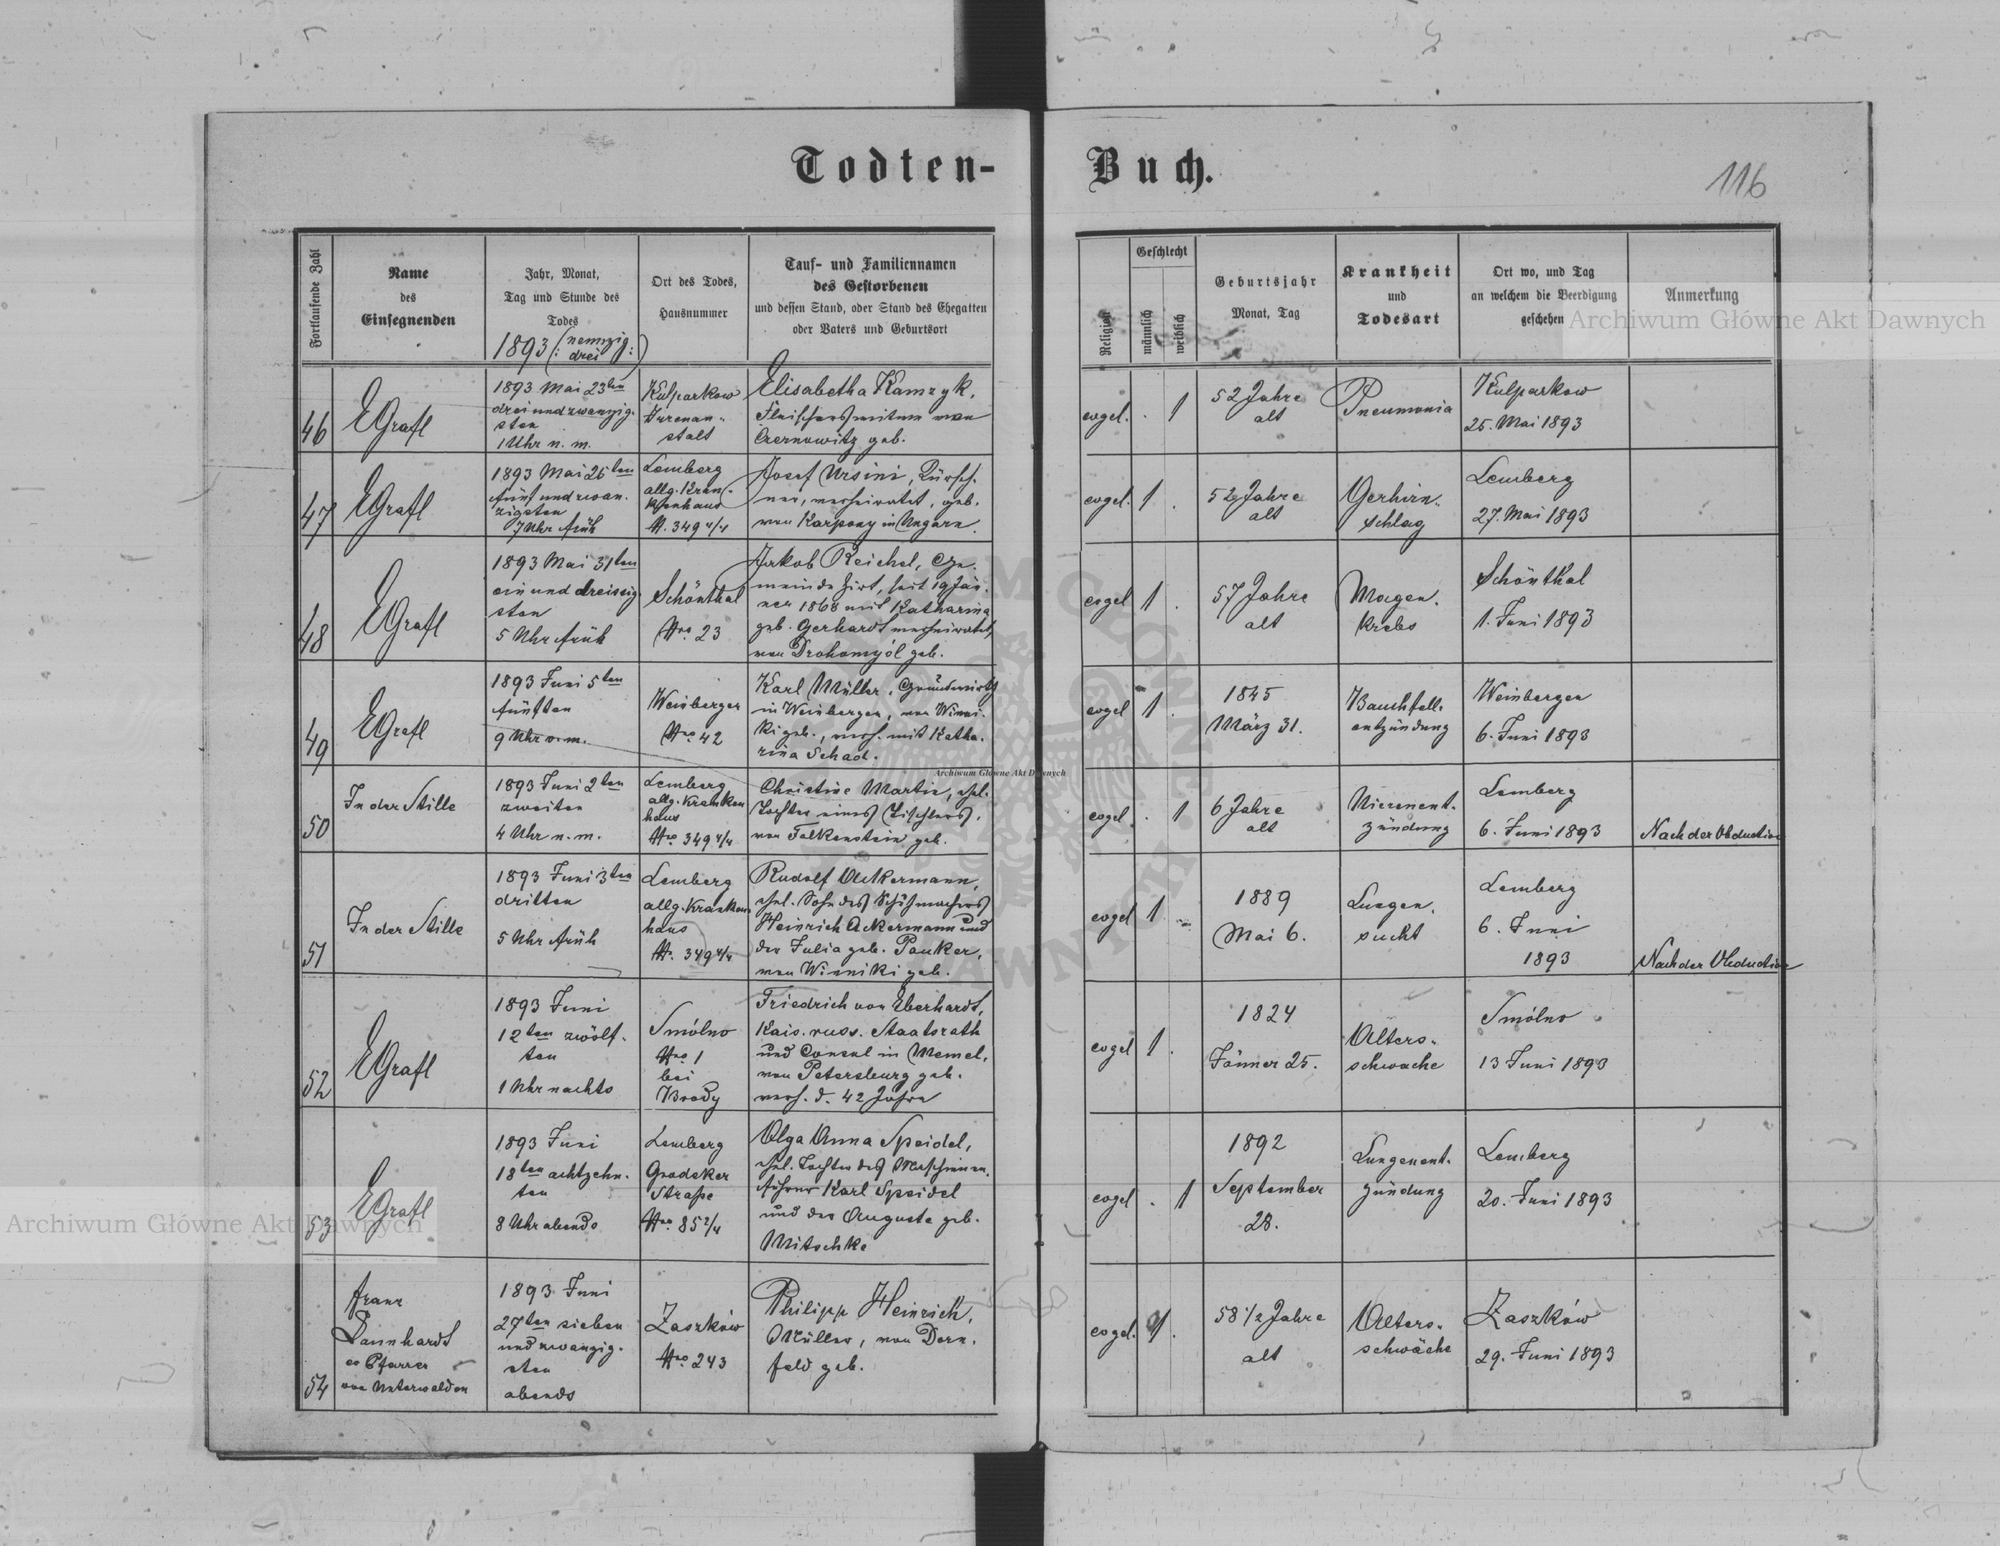 Todten-Buch.
116
Fortlaufende Zahl
Name
des
Einsegnenden
Jahr, Monat,
Tag und Stunde des
Todes
1893 (: neunzig
drei :)
Ort des Todes,
Hausnummer
Tauf- und Familiennamen
des Gestorbenen
und dessen Stand, oder Stand des Ehegatten
oder Vaters und Geburtsort
Religion
Geschlecht
männlich
weiblich
Geburtsjahr
Monat, Tag
Krankheit
und
Todesart
Ort wo, und Tag
an welchem die Beerdigung
geschehen
Anmerkung
46
EGrafl
1893 Mai 23ten
dreiundzwanzig-
sten
1 Uhr n. m.
Kulparkow
Irrenan-
stalt
Elisabetha Kamzyk,
Fleischerswitwe von
Czernowitz geb.
evgel.
. 1
52 Jahre
alt
Pneumonia
Kulparkow
25. Mai 1893
47
EGrafl
1893 Mai 25ten
fünfundzwan-
zigsten
7 Uhr früh
Lemberg
allg. Kran-
kenhaus
No. 349 4/4
Josef Ursini, Kürsch-
ner, verheiratet, geb.
von Karpony in Ungarn.
evgel.
1 .
52 Jahre
alt
Gerhirn-
schlag
Lemberg
27. Mai 1893
48
EGrafl
1893 Mai 31ten
einunddreissig-
sten
5 Uhr früh
Schönthal
Nro 23
Jakob Reichel, Ge-
meindehirt, seit 19 Jän-
ner 1868 mit Katharina
geb. Gerhardt verheiratet,
von Drohomyśl geb.
evgel
1 .
57 Jahre
alt
Magen-
krebs
Schönthal
1. Juni 1893
49
EGrafl
1893 Juni 5ten
fünften
9 Uhr v. m.
Weinbergen
Nro 42
Karl Müller, Grundwirth
in Weinbergen, von Winni-
ki geb., verh. mit Katha-
rina Schad.
evgel
1 .
1845
März 31.
Bauchfell-
entzündung
Weinbergen
6. Juni 1893
50
In der Stille
1893 Juni 2ten
zweiten
4 Uhr n. m.
Lemberg
allg. Kranken
haus
Nro 349 4/4
Christine Martin, ehel.
Tochter eines Tischlers,
von Falkenstein geb.
evgel.
. 1
6 Jahre
alt
Nierenent-
zündung
Lemberg
6. Juni 1893
Nach der Obduction
51
In der Stille
1893 Juni 3ten
dritten
5 Uhr früh
Lemberg
allg. Kranken
haus
No. 349 4/4
Rudolf Ackermann,
ehel. Sohn des Schuhmachers
Heinrich Ackermann und
der Julia geb. Pauker,
von Winniki geb.
evgel
1
1889
Mai 6.
Lungen-
sucht
Lemberg
6. Juni
1893
Nach der Obduction
52
EGrafl
1893 Juni
12ten zwölf-
ten
1 Uhr nachts
Smólno
Nro 1
bei
Brody
Friedrich von Eberhardt,
Kais. russ. Staatsrath
und Consul in Memel,
von Petersburg geb.
verh. d. 42 Jahre
evgel
1 .
1824
Jänner 25.
Alters-
schwache
Smólno
13 Juni 1893
53
EGrafl
1893 Juni
18ten achtzehn-
ten
8 Uhr abends
Lemberg
Grodeker
Straße
Nro 85 2/4
Olga Anna Speidel,
ehel. Tochter des Maschinen-
führer Karl Speidel
und der Auguste geb.
Mitschke
evgel
. 1
1892
September
28.
Lungenent-
zündung
Lemberg
20. Juni 1893
54
Franz
Dannhardt
ev Pfarrer
von Unterwalden
1893 Juni
27ten sieben
undzwanzig-
sten
abends
Zaszków
Nro 243
Philipp Heinrich,
Müller, von Dorn-
feld geb.
evgel.
1 .
58 1/2 Jahre
alt
Alters-
schwäche
Zaszków
29. Juni 1893
Archiwum Główne Akt Dawnych
Archiwum Główne Akt Dawnych
Archiwum Główne Akt Dawnych